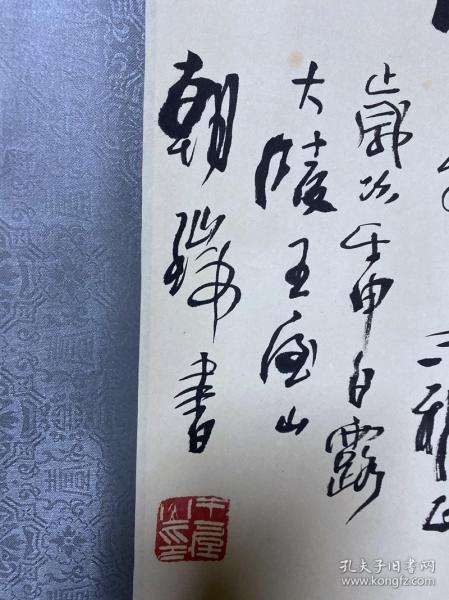 雅正
歲次壬申白露
大陵王屋山
朝瑞書
孔夫子旧书网
www.kongfz.com